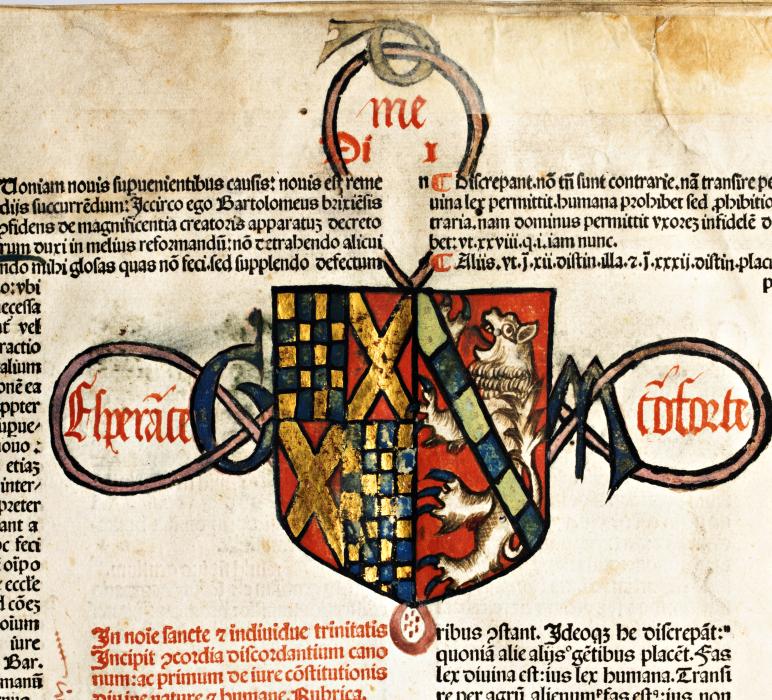 me
Di
Quoniam nouis supuenientibus causis: nouis est reme
dijs succurrēdum: Jccirco ego Bartolomeus brixiēsis
ꝯfidens de magnificentia creatoris apparatuȝ decreto
rum duxi in melius reformandū: nō detrahendo alicui
ndo mihi glosas quas nō feci. sed supplendo defectum
o: vbi
ecessa
vel
ractio
alium
onē ea
ppter
upue-
ouo:
etiaȝ
inter/
preter
ant a
c feci
oīpo
eccle
d cōeȝ
oium
iure
Bar.
manū
Discrepant. nō tn̄ sunt contrarie. nā transire pe
uina lex permittit. humana prohibet sed ꝓhibitio
traria. nam dominus permittit vxoreȝ infidelē d
bet: vt. xxviii. q. i. iam nunc.
Aliis. vt. j. xii. distin. illa. ⁊. j. xxxij. distin. placu
p
Esperāce
G
M
cōforte
In noīe sancte ⁊ indiuidue trinitatis
Incipit ꝯcordia discordantium cano
num: ac primum de iure cōstitutionis
diuine nature ⁊ humane. Rubrica.
ribus ꝯstant. Jdeoqȝ he discrepāt:
quoniā alie alijs gētibus placēt. Fas
lex diuina est: ius lex humana. Transi
re per agrū alienum fas est: ius non